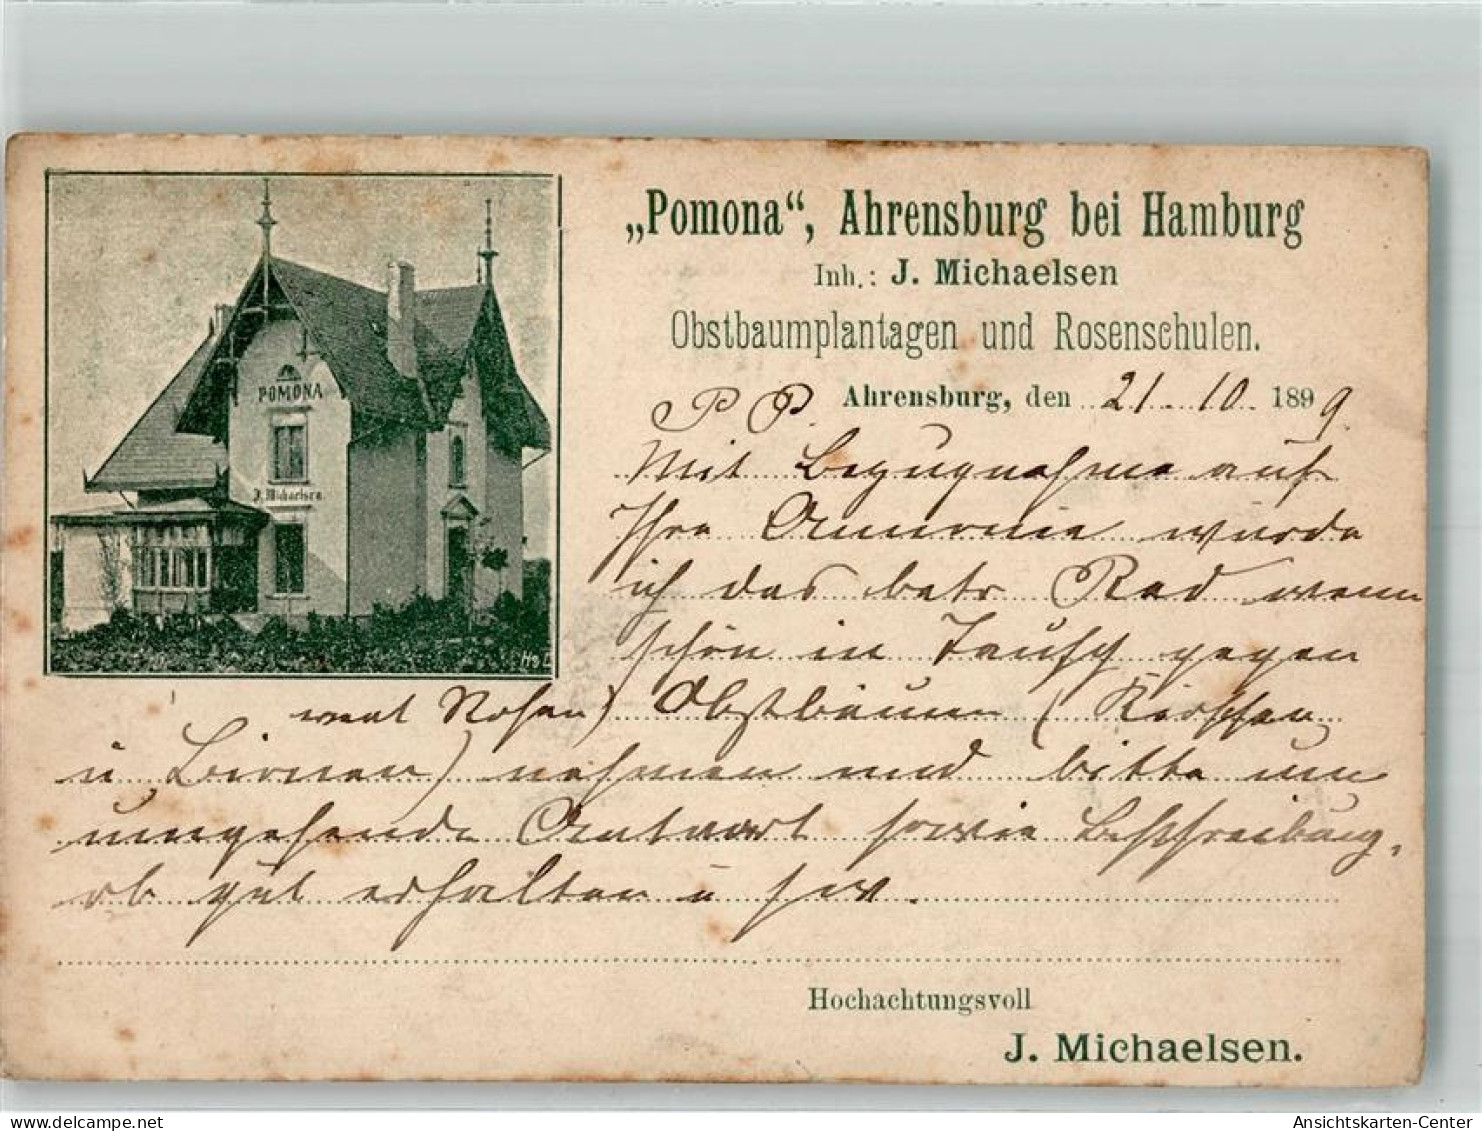 „Pomona“, Ahrensburg bei Hamburg
Inh.: J. Michaelsen
Obstbaumplantagen und Rosenschulen.
Ahrensburg, den 21. 10. 1899.
P. P.
POMONA
J. Michaelsen.
Mit Bezugnahme auf
Ihre Annonce würde
ich das betr. Rad wenn
schön in Tausch gegen
Obstbäume (Kirschen
Rosen)
u Birnen) nehmen und bitte um
umgehende Antwort sowie Beschreibung,
ob gut erhalten u
Hochachtungsvoll
J. Michaelsen.
Ansichtskarten-Center